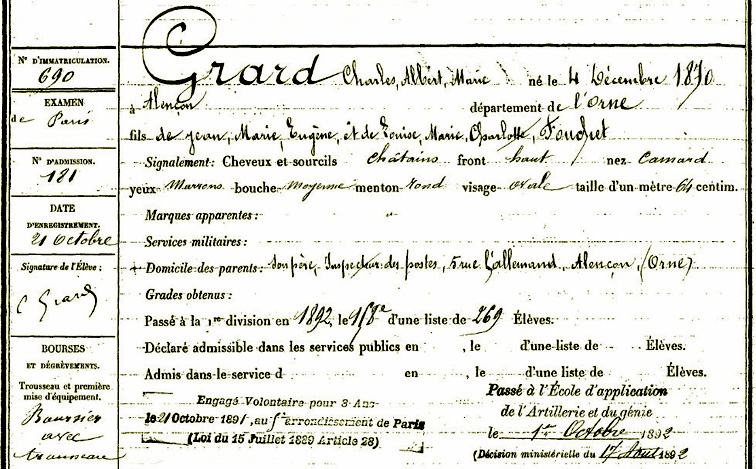 N° D'IMMATRICULATION.
690
EXAMEN
de Paris
N° D'ADMISSION.
121
DATE
D'ENREGISTREMENT.
21 Octobre
Signature de l'Élève :
C Grard
BOURSES
ET DÉGRÈVEMENTS.
Trousseau et première
mise d'équipement.
Boursier
avec
trousseau
Grard Charles, Albert, Marie né le 4 Décembre 1870
à Alençon département de l'Orne
fils de Jean, Marie, Eugène, et de Louise, Marie, Charlotte, Fouquet
Signalement : Cheveux et sourcils châtains front haut nez camard
yeux Marrons bouche moyenne menton rond visage ovale taille d'un mètre 64 centim.
Marques apparentes : "
Services militaires :
Domicile des parents : son père, Inspecteur des postes, 5 rue Lallemand, Alençon, (Orne)
Grades obtenus :
Passé à la 1re division en 1892, le 158e d'une liste de 269 Élèves.
Déclaré admissible dans les services publics en , le d'une liste de Élèves.
Admis dans le service d en , le d'une liste de Élèves.
Engagé Volontaire pour 3 Ans
le 21 Octobre 1891, au arrondissement de Paris
(Loi du 15 Juillet 1889 Article 28)
Passé à l'École d'application
de l'Artillerie et du génie
le 1er Octobre 1892
(Décision ministérielle du 17 Août 1892